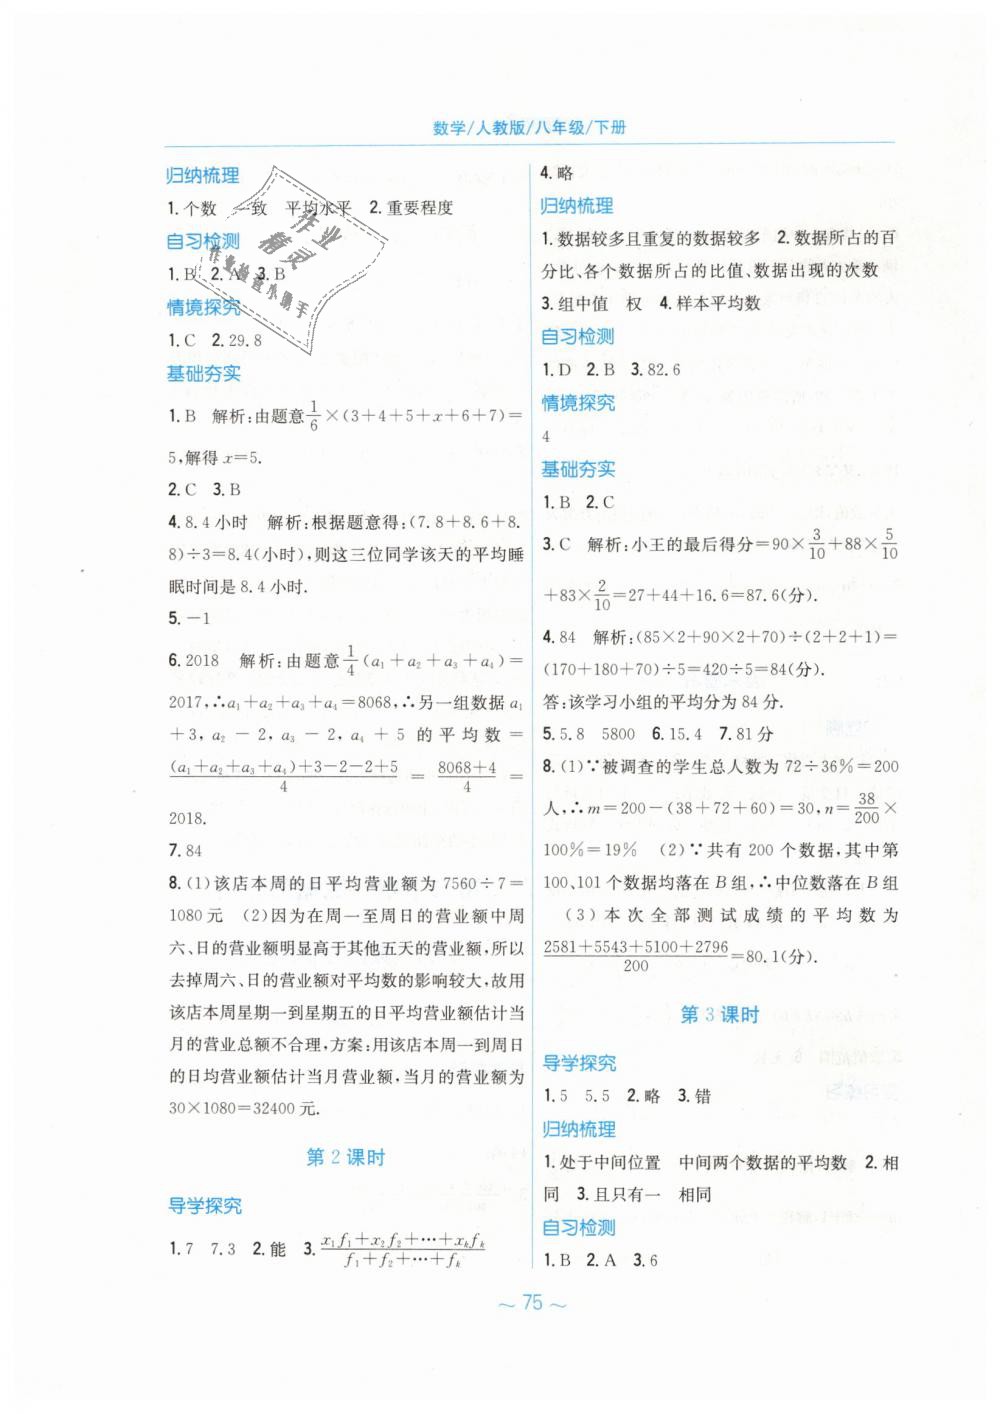 数学/人教版/八年级/下册
归纳梳理
1.个数 一致 平均水平 2.重要程度
自习检测
1.B 2.A 3.B
情境探究
1.C 2.29.8
基础夯实
1.B 解析:由题意1/6×(3+4+5+x+6+7)=
5,解得x=5.
2.C 3.B
4.8.4小时 解析:根据题意得:(7.8+8.6+8.
8)÷3=8.4(小时),则这三位同学该天的平均睡
眠时间是8.4小时.
5.-1
6.2018 解析:由题意1/4(a₁+a₂+a₃+a₄)=
2017,∴a₁+a₂+a₃+a₄=8068,∴另一组数据a₁
+3,a₂-2,a₃-2,a₄+5的平均数=
(a₁+a₂+a₃+a₄)+3-2-2+5/4=8068+4/4=
2018.
7.84
8.(1)该店本周的日平均营业额为7560÷7=
1080元 (2)因为在周一至周日的营业额中周
六、日的营业额明显高于其他五天的营业额,所以
去掉周六、日的营业额对平均数的影响较大,故用
该店本周星期一到星期五的日平均营业额估计当
月的营业总额不合理,方案:用该店本周一到周日
的日均营业额估计当月营业额,当月的营业额为
30×1080=32400元.
第2课时
导学探究
1.7 7.3 2.能 3.x₁f₁+x₂f₂+…+xₖfₖ/f₁+f₂+…+fₖ
4.略
归纳梳理
1.数据较多且重复的数据较多 2.数据所占的百
分比、各个数据所占的比值、数据出现的次数
3.组中值 权 4.样本平均数
自习检测
1.D 2.B 3.82.6
情境探究
4
基础夯实
1.B 2.C
3.C 解析:小王的最后得分=90×3/10+88×5/10
+83×2/10=27+44+16.6=87.6(分).
4.84 解析:(85×2+90×2+70)÷(2+2+1)=
(170+180+70)÷5=420÷5=84(分).
答:该学习小组的平均分为84分.
5.5.8 5800 6.15.4 7.81分
8.(1)∵被调查的学生总人数为72÷36%=200
人,∴m=200-(38+72+60)=30,n=38/200×
100%=19% (2)∵共有200个数据,其中第
100、101个数据均落在B组,∴中位数落在B组
(3)本次全部测试成绩的平均数为
2581+5543+5100+2796/200=80.1(分).
第3课时
导学探究
1.5 5.5 2.略 3.错
归纳梳理
1.处于中间位置 中间两个数据的平均数 2.相
同 3.且只有一 相同
自习检测
1.B 2.A 3.6
~ 75 ~
作业
精灵
作业检查小助手